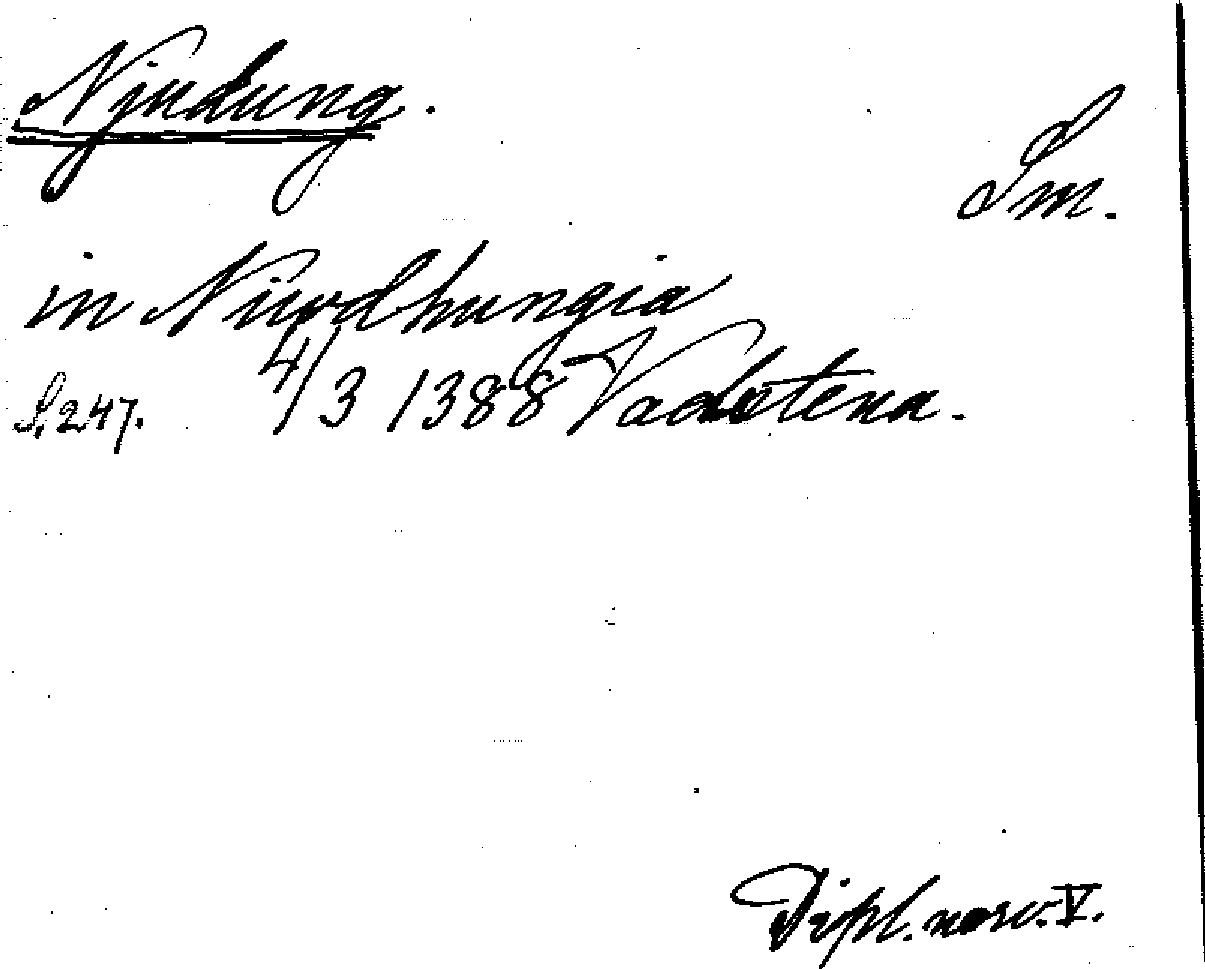 Njudung.
Sm.
in Niwdhungia
S. 247. 4/3 1388 Vadstena.
Dipl. norv. V.